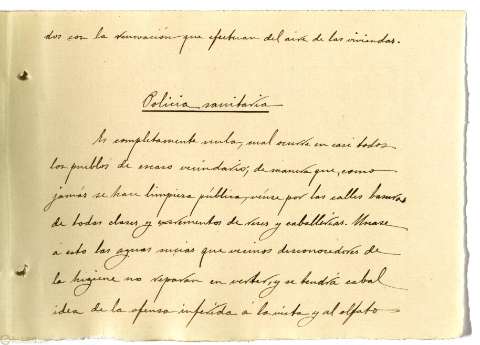 dos con la renovación que efectuan del aire de las viviendas.
Policia sanitaria
Es completamente nula, cual ocurre en casi todos
los pueblos de escaso vecindario; de manera que, como
jamás se hace limpieza pública, vénse por las calles basuras
de todas clases y excrementos de reses y caballerias. Unase
á esto las aguas sucias que vecinos desconocedores de
la higiene no reparan en verter, y se tendrá cabal
idea de la ofensa inferida á la vista y al olfato